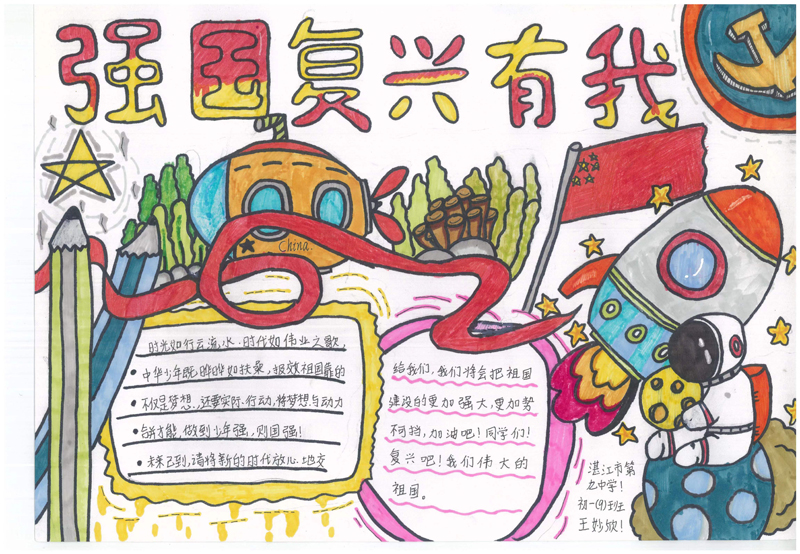 强国复兴有我
China
时光如行云流水,时代如伟业之歌,
中华少年既晔晔如扶桑,报效祖国靠的
不仅是梦想,还要实际行动,将梦想与动力
合并才能做到少年强,则国强!
未来已到,请将新的时代放心地交
给我们,我们将会把祖国
建设的更加强大,更加努
不挡,加油吧!同学们!
复兴吧!我们伟大的
祖国。
湛江市第
九中学!
初一(9)班
王妙欣!